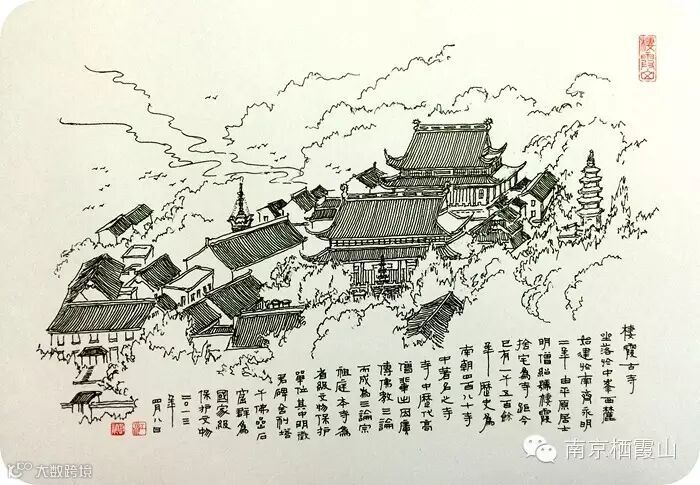 棲霞山
棲霞古寺
坐落於中峯西麓
始建於南齐永明
二年 由平原居士
明僧紹將棲霞
捨宅為寺 距今
已有一千五百餘
年 歷史為
南朝四百八十寺
中著名之寺
寺中歷代高
僧輩出因廣
傳佛教三論
而成為三論宗
祖庭本寺為
省級文物保护
單位其中明徵
君碑舍利塔
千佛嵒石
窟群為
國家級
保护文物
二〇一三
年
四月八日
大数跨境
南京栖霞山